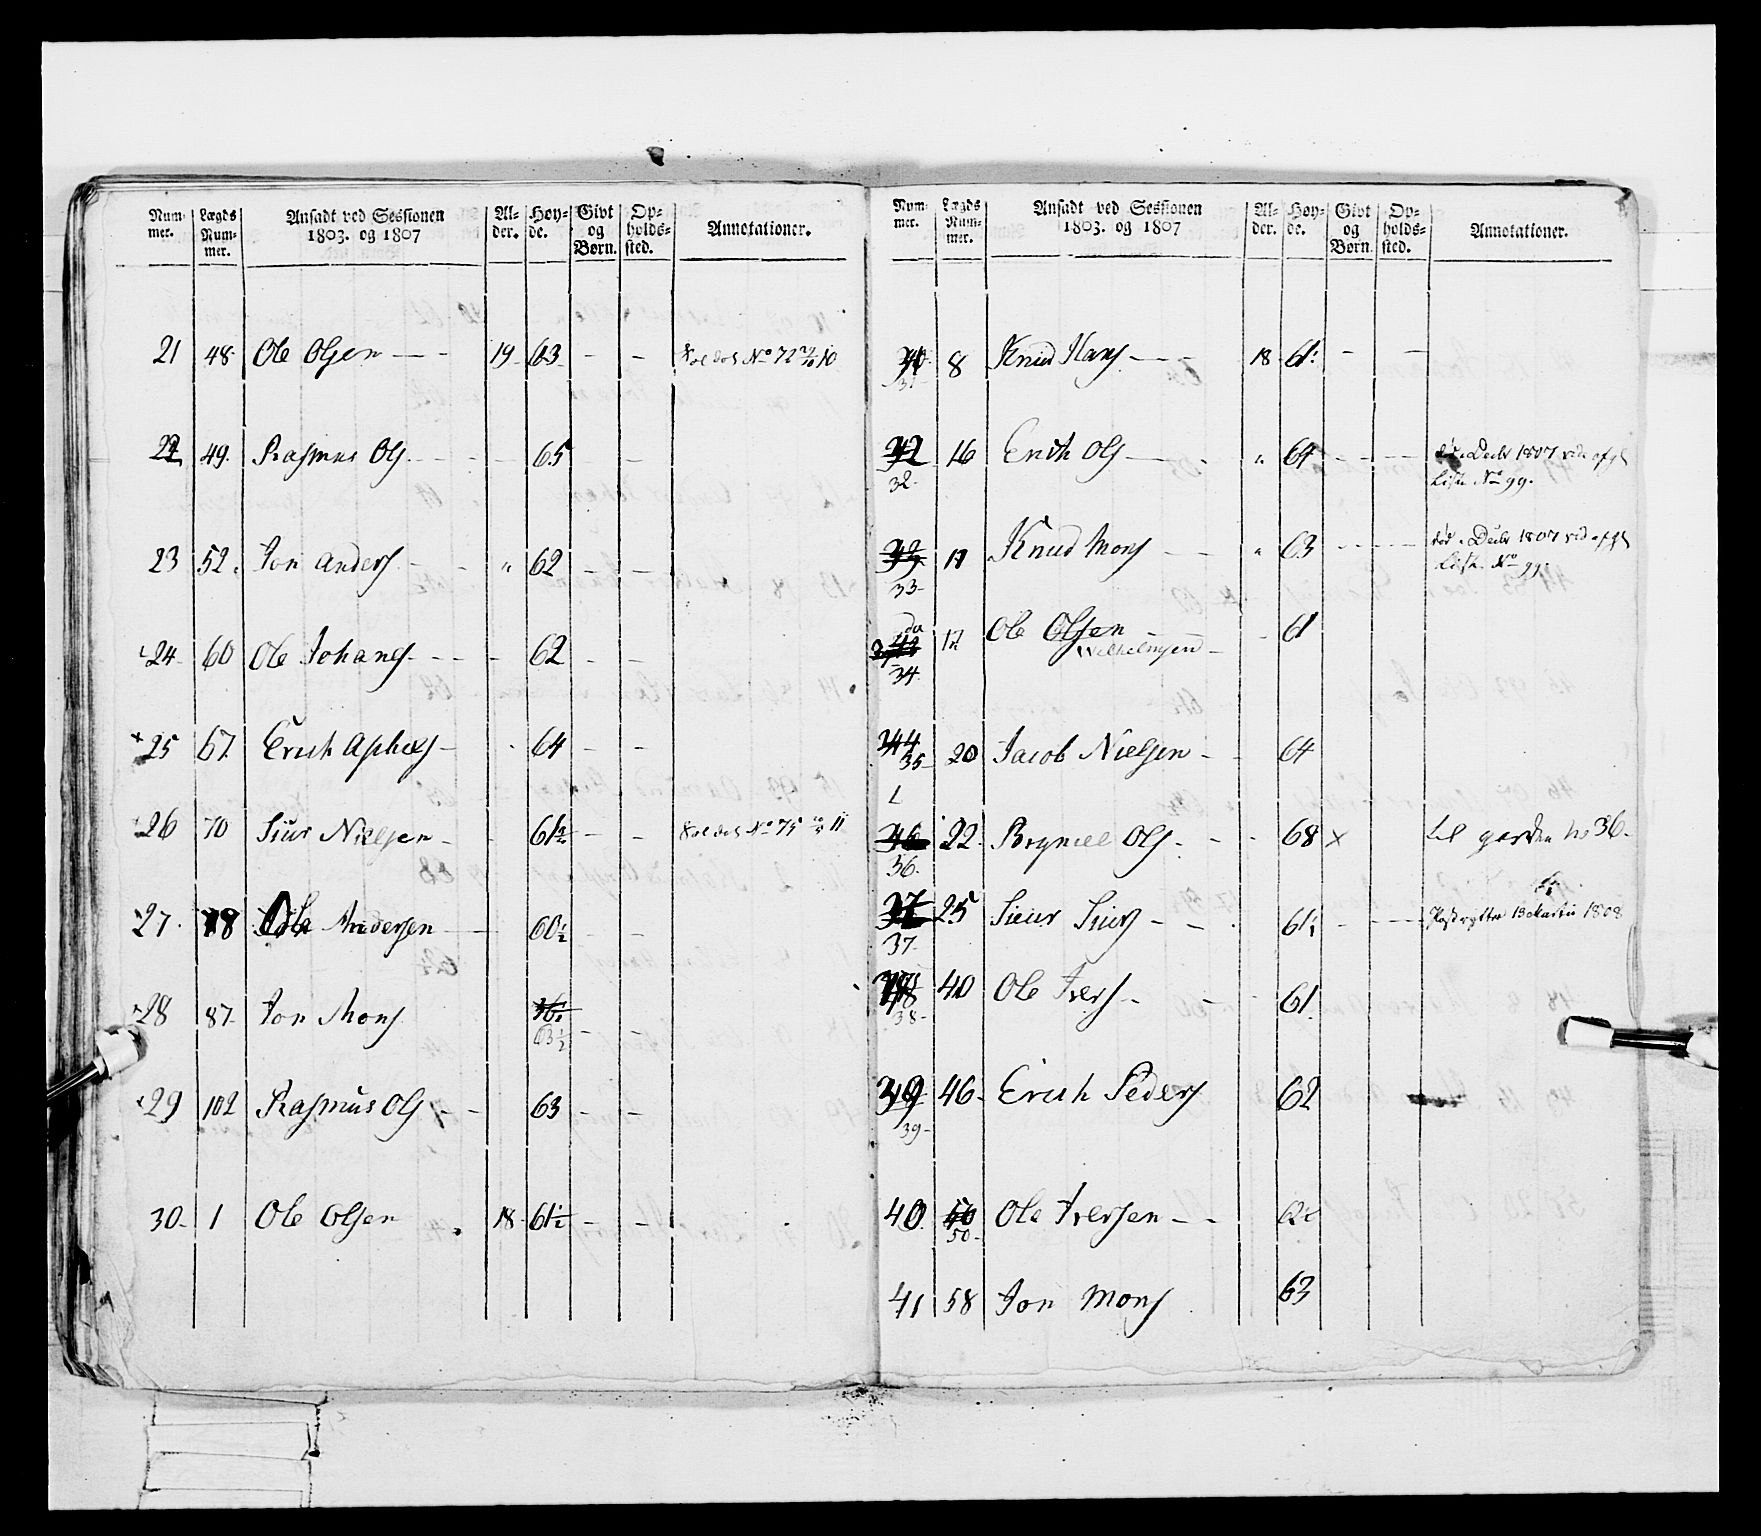 Num- mer. Lægds Num- mer. Ansadt ved Sessionen 1803. og 1807 Al- der. Høy- de. Givt og Børn. Op- holds- sted. Annotationer.
21 48 Ole Olsen — - 19 63 - - No 72 10
22 49. Rasmus Ols. - - - 65 -
23 52. Jon Anders - - " 62 - -
24 60 Ole Johans - - - 62 - -
25 67. Erich - 64 - -
26 70 Siur Nielsen - 61½ - - No 75 11
27. 78 Ole Andersen - - 60½ - -
28 87. Jon Mons
63½ - -
29 102 Rasmus Ols - - 63 - -
30. 1 Ole Olsen 18 61½ - -
Num- mer. Lægds Num- mer. Ansadt ved Sessionen 1803. og 1807 Al- der. Høy- de. Givt og Børn. Op- holds- sted. Annotationer.
31 8 Knud Hans — - 18 61 - -
16 Erich Ols — - " 64 - - - Decbr 1807
32. No 99.
17 Knud Mons - - " 63 - - - Decbr 1807
33 No 99.
Ole Olsen - 61
34
35 20 Jacob Nielsen - - 64
22. Ols. - - 68 x til garden No 36.
36.
25 Siur Siurs - - 61½ - - - 13 Martii 1808
37.
40 Ole Ivers - - 61.
38
46. Erich Peders 62
39
40. Ole Iversen - -
50.
41 58 Jon Mons 63